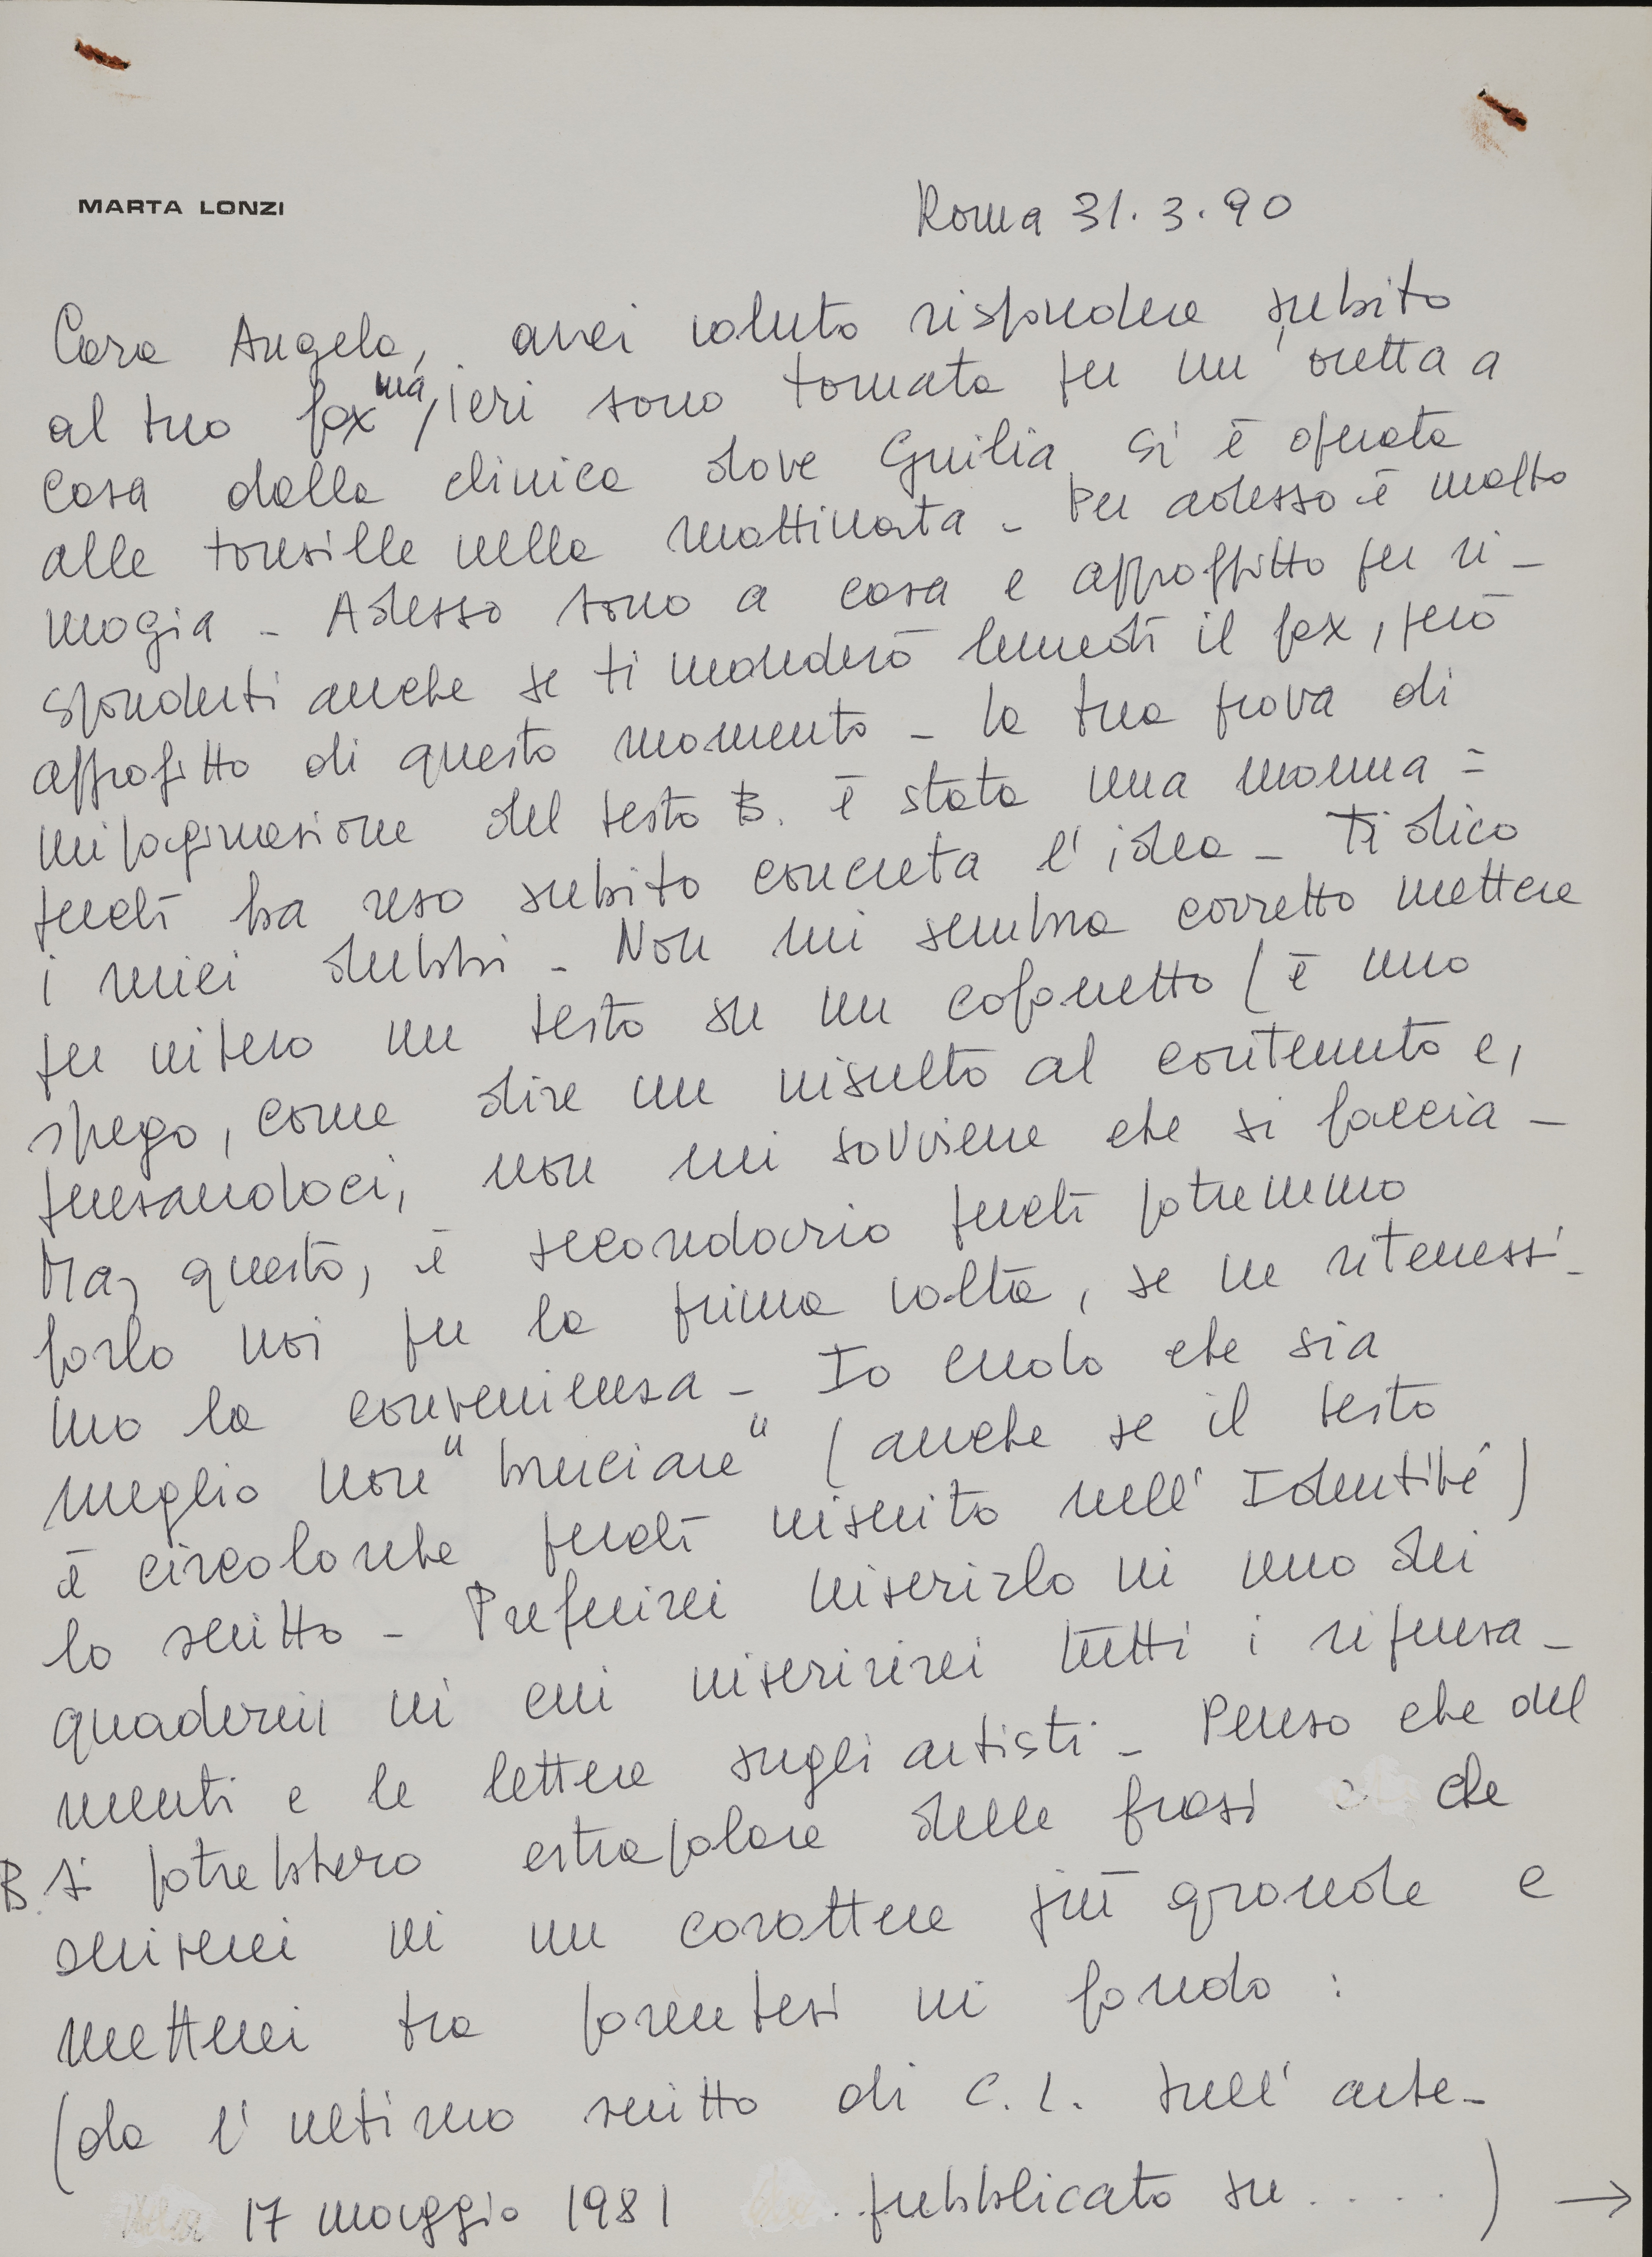 MARTA LONZI
Roma 31.3.90
Cara Angela, avrei voluto rispondere subito
al tuo fax ma, ieri sono tornata per un'oretta a
casa dalla clinica dove Giulia si è operata
alle tonsille nella mattinata - Per adesso è molto
mogia - Adesso sono a casa e approffitto per ri-
sponderti anche se ti manderò lunedì il fax, però
approfitto di questo momento - la tua prova di
impaginazione del testo B. è stata una manna =
perchè ha reso subito concreta l'idea - Ti dico
i miei dubbi - Non mi sembra corretto mettere
per intero un testo su un cofanetto (è uno
spego, come dire un insulto al contenuto e,
pensandoci, non mi sovviene che si faccia -
Ma, questo, è secondario perchè potremmo
farlo noi per la prima volta, se ne ritenessi-
mo la convenienza - Io credo che sia
meglio non "bruciare" (anche se il testo
è circolante perchè inserito nell'Identité)
lo scritto - Preferirei inserirlo in uno dei
quaderni in cui inseririrei tutti i ripensa-
menti e le lettere sugli artisti - Penso che del
B. si potrebbero estrapolare delle frasi che
scriverei in un carattere più grande e
metterei tra parentesi in fondo :
(da l'ultimo scritto di C.L. sull'arte -
17 maggio 1981 pubblicato su.....) →